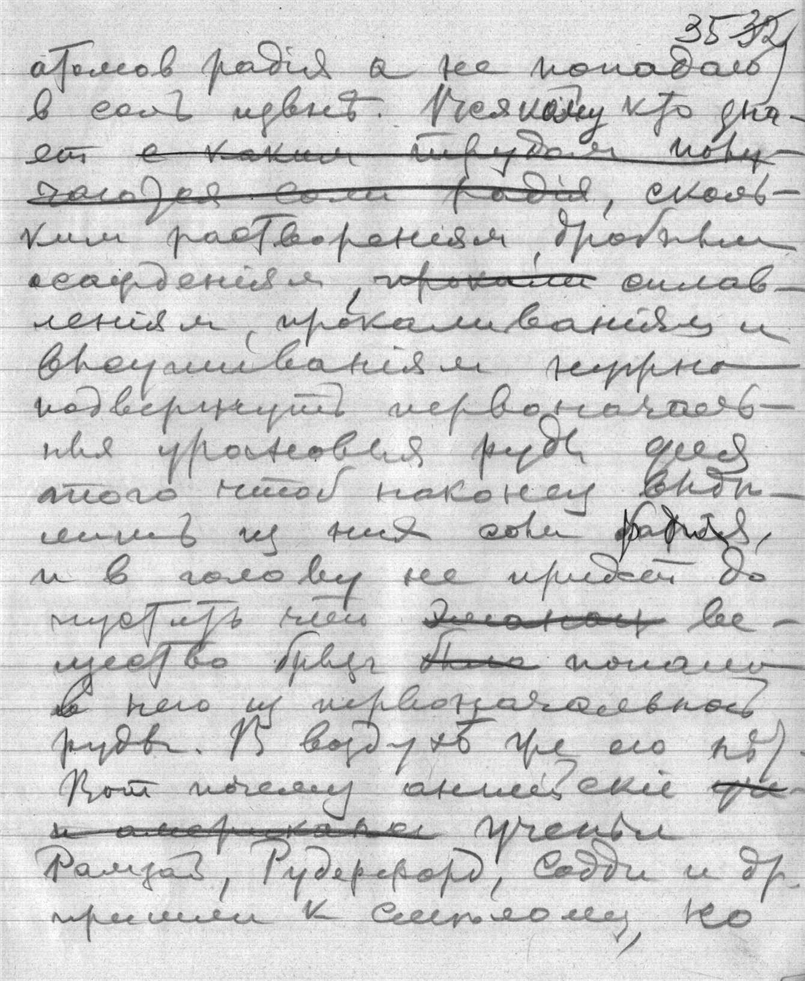 35 32
атомов радія а не попадаю
в соль извнѣ. Всякому кто зна-
ет с каким трудом полу-
чаются соли радія, сколь-
ким растворениям, дробным
осаждениям, прокали сплав-
лениям, прокаливаниям и
высушиваниям нужно
подвергнуть первоначаль-
ныя урановыя руды для
того чтоб наконец выдѣ-
лить из них соли радия,
и в голову не придет до
пустить чтоб эманац ве-
щество было попало
в него из первоначальной
руды. В воздухѣ же его нѣт).
Вот почему английскіе
и американск ученые
Рамзай, Рудерфорд, Содди и др.
пришли к смѣлому, но